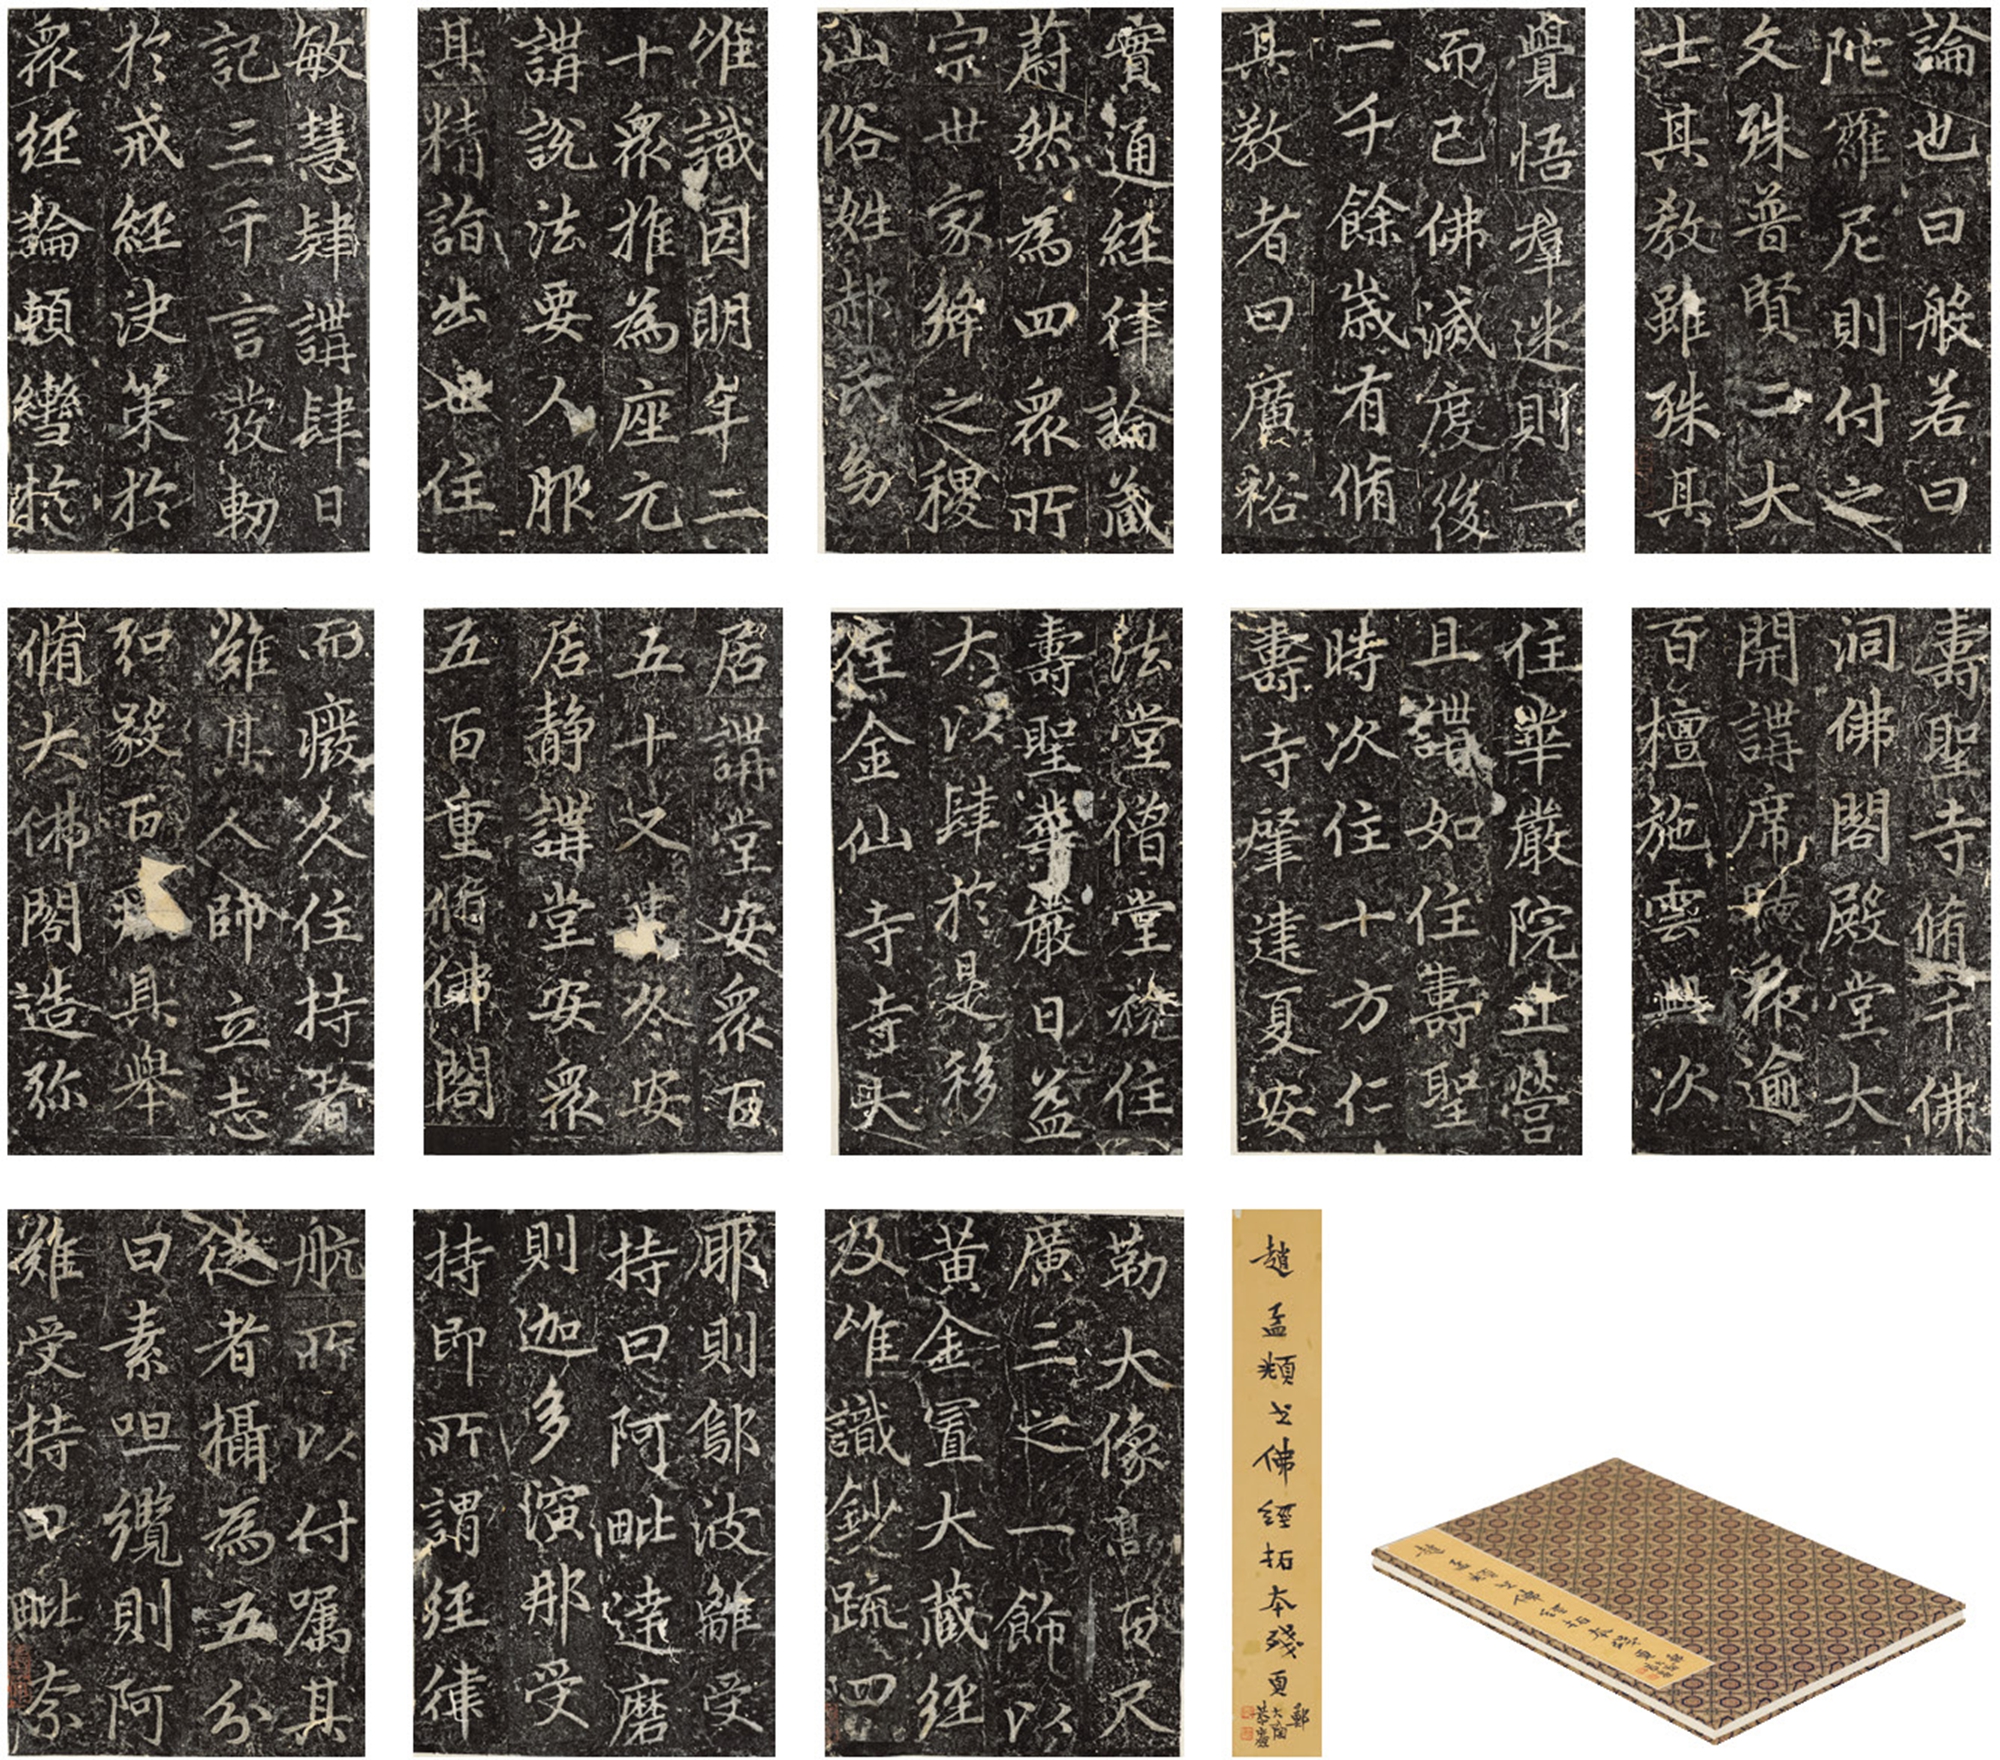 論也曰般若曰
陀羅尼則付之
文殊普賢二大
士其教雖殊其
覺悟羣迷則一
而已佛滅度後
二千餘歲有脩
其教者曰廣裕
實通經律論藏
蔚然為四眾所
宗世家絳之稷
山俗姓郝氏幼
唯識因明年二
十眾推為座元
講說法要人服
其精詣出世住
敏慧肄講肆日
記三千言發軔
於戒經決策於
眾經論頓轡於
壽聖寺脩千佛
洞佛閣殿堂大
開講席聽眾逾
百檀施雲興次
住華嚴院且營
且講如住壽聖
時次住十方仁
壽寺肇建夏安
法堂僧堂視住
壽聖華嚴日益
大以肆於是移
住金仙寺寺大
居講堂安眾百
五十又建冬安
居靜講堂安眾
五百重脩佛閣
而廢久住持者
難其人師立志
弘毅百廢具舉
脩大佛閣造弥
勒大像高百尺
廣三之一飾以
黃金置大藏經
及唯識鈔疏四
耶則鄔波離受
持曰阿毗達磨
則迦多演那受
持即所謂經律
航所以付囑其
徒者攝為五分
曰素呾纜則阿
難受持曰毗奈
趙孟頫書佛經拓本殘頁